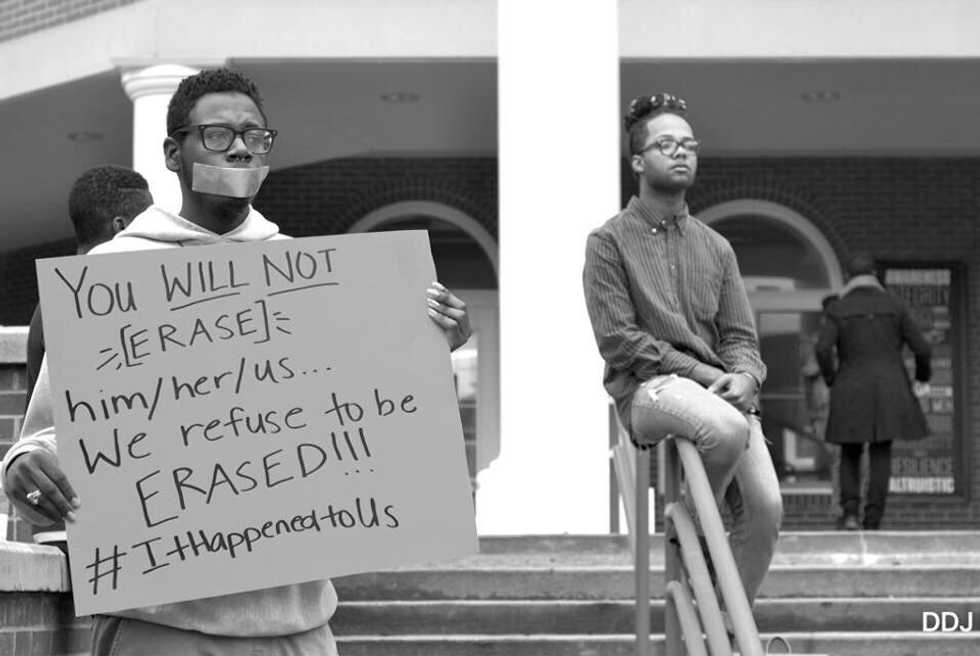 You WILL NOT
[ERASE]
him/her/us...
We refuse to be
ERASED!!!
#ItHappenedtoUs
AWARENESS
RESILIENCE
ALTRUISTIC
DDJ